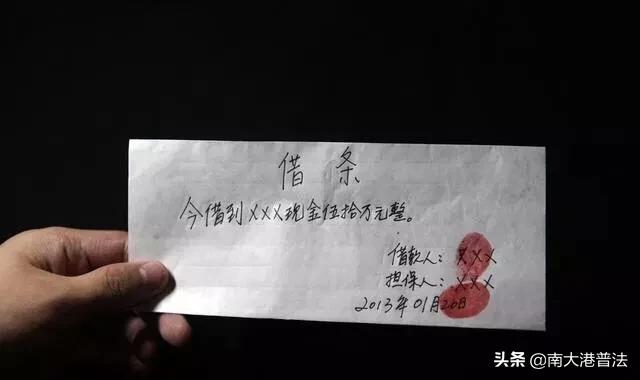 借条
今借到XXX现金伍拾万元整。
借款人：XXX
担保人：XXX
2013年01月20日
头条 @南大港普法